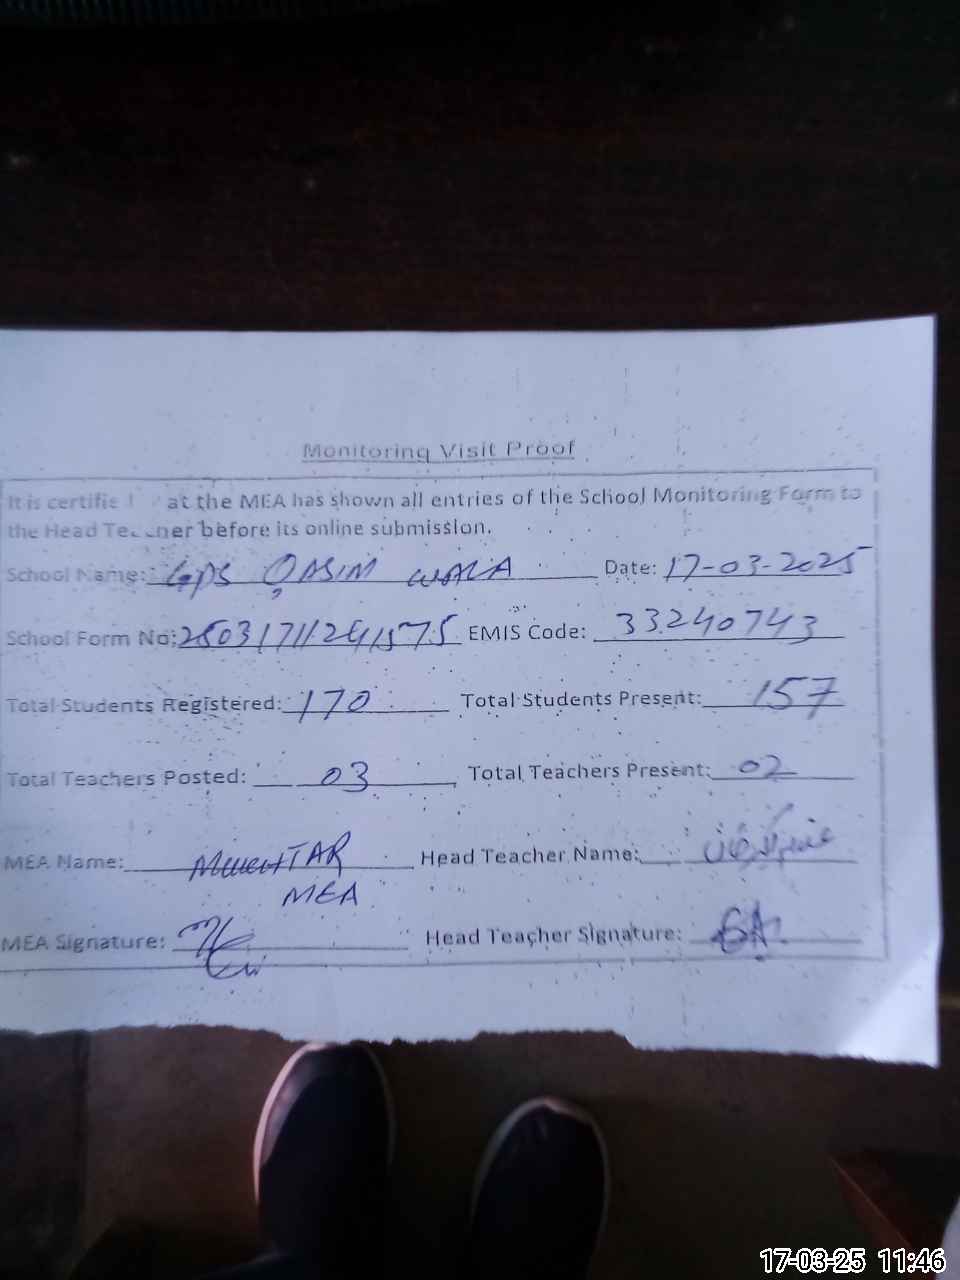 Monitoring Visit Proof
It is certifie at the MEA has shown all entries of the School Monitoring Form to
the Head Teacher before its online submission.
School Name: GPS QASIM WALA Date: 17-03-2025
School Form No: EMIS Code: 33240743
Total Students Registered: 170 Total Students Present: 157
Total Teachers Posted: 03 Total Teachers Present: 02
MEA Name: MUKHTAR Head Teacher Name:
MEA
MEA Signature: Head Teacher Signature:
17-03-25 11:46